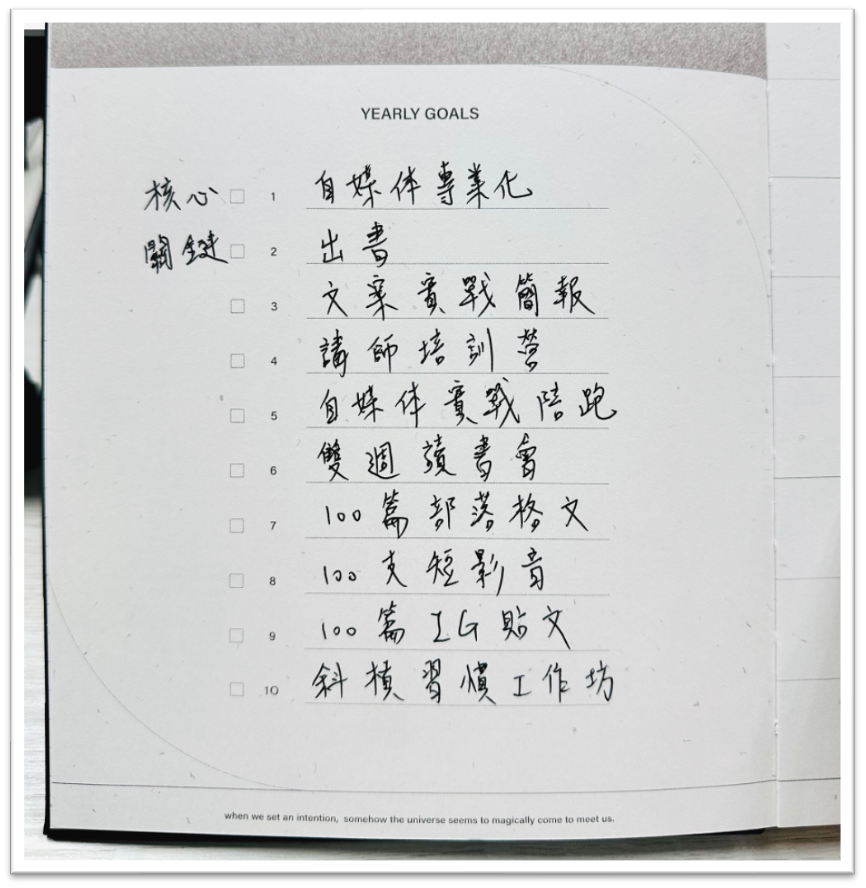 YEARLY GOALS
核心 1 自媒体專業化
關鍵 2 出書
3 文案實戰簡報
4 講師培訓營
5 自媒体實戰陪跑
6 雙週讀書會
7 100篇部落格文
8 100支短影音
9 100篇IG貼文
10 斜槓習慣工作坊
when we set an intention, somehow the universe seems to magically come to meet us.